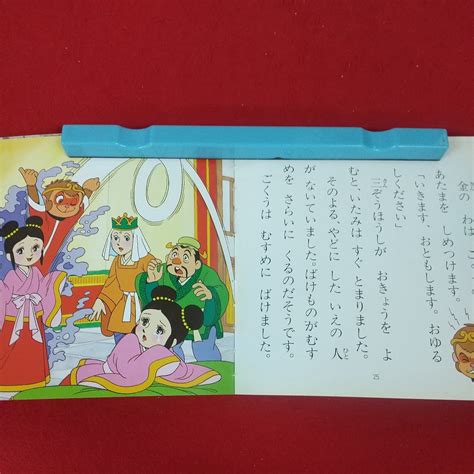 金の わは ご
あたまを しめつけます。
「いきます。おともします。おゆる
しください」
三ぞうほうしが おきょうを よ
むと、いたみは すぐ とまりました。
そのよる、やどに した いえの 人
が ないていました。ばけものが むす
めを さらいに くるのだそうです。
ごくうは むすめに ばけました。
25